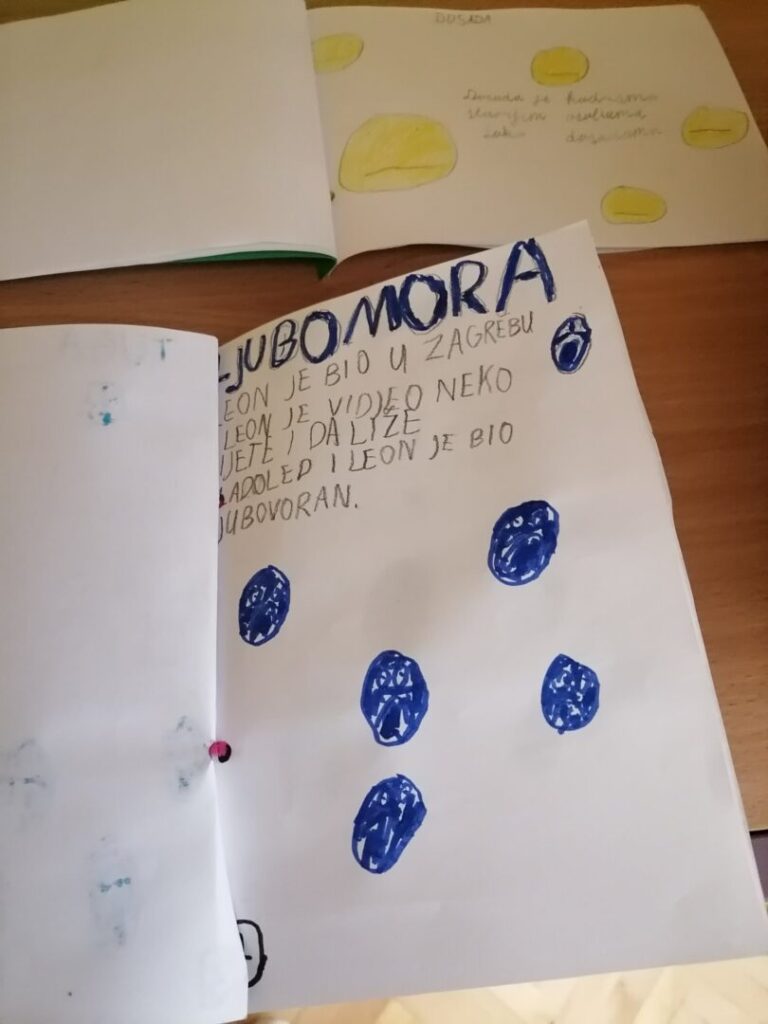 DOSADA
Dosada je
LJUBOMORA
LEON JE BIO U ZAGREBU
LEON JE VIDJEO NEKO
IJETE I DA LIŽE
LADOLED I LEON JE BIO
JUBOVORAN.